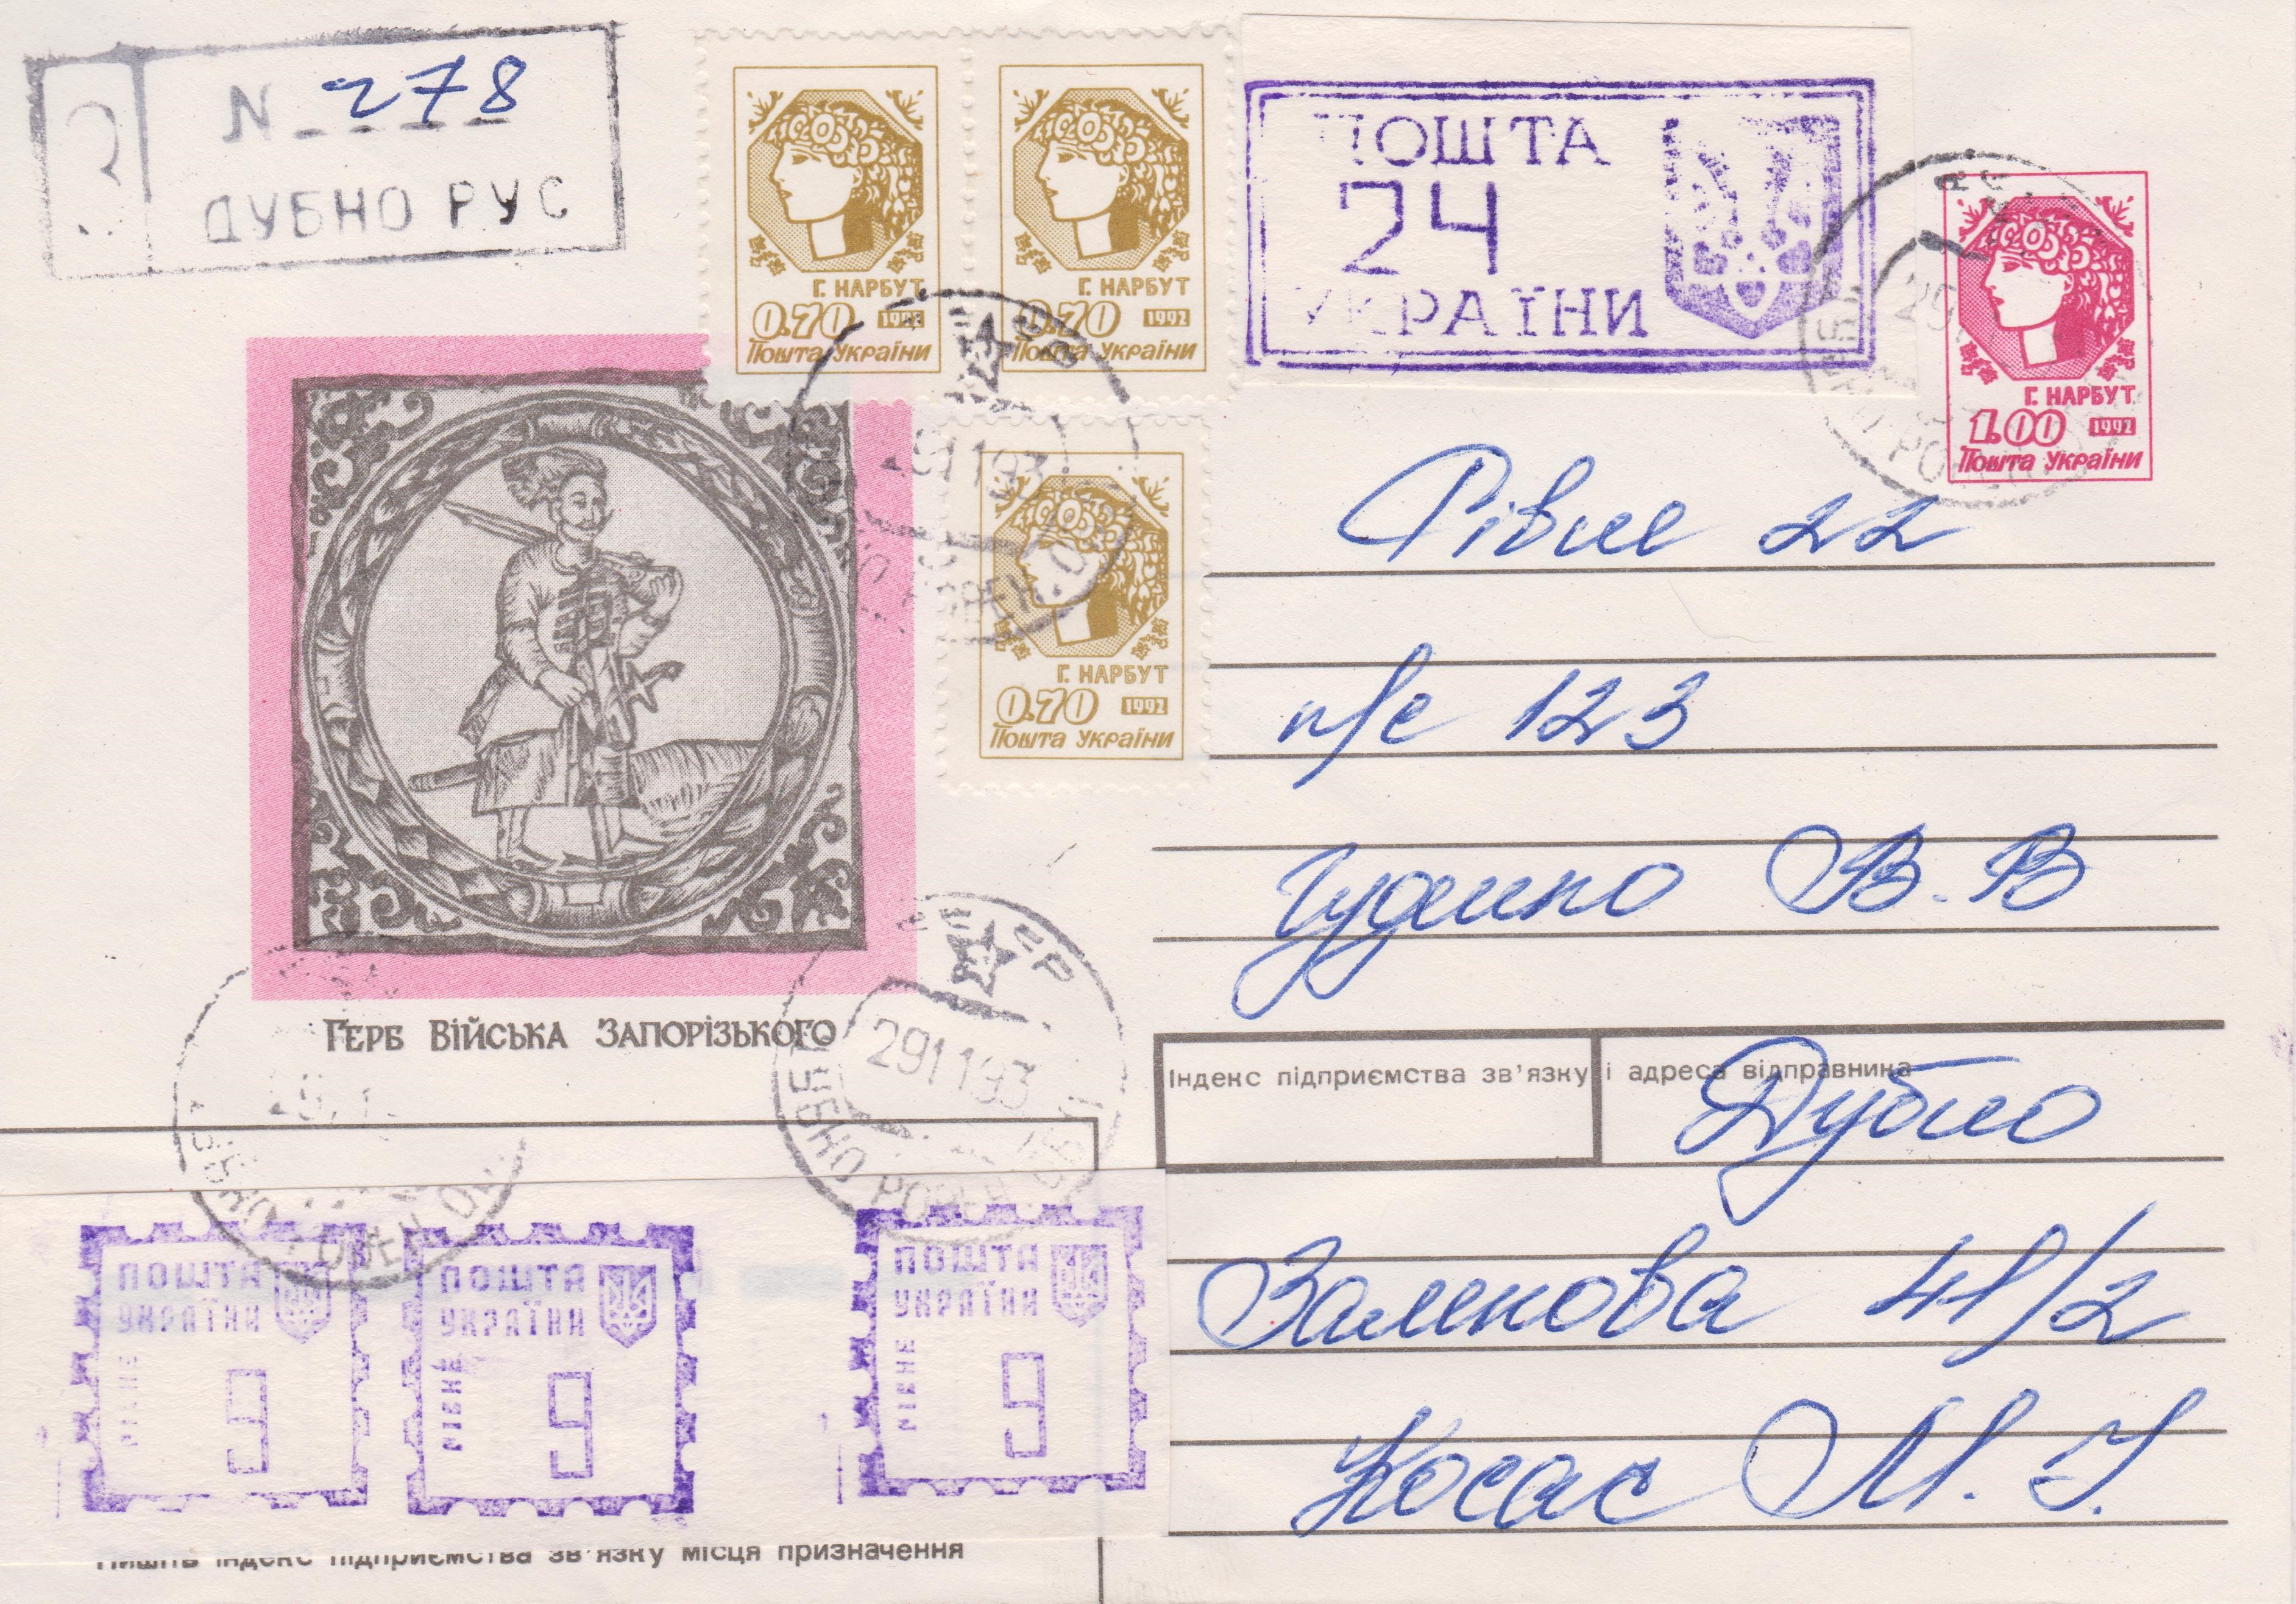 N 278
ДУБНО РУС
Г. НАРБУТ
0.70 1992
Пошта України
Г. НАРБУТ
0.70 1992
Пошта України
ПОШТА
24
УКРАЇНИ
Г. НАРБУТ
1.00 1992
Пошта України
Г. НАРБУТ
0.70 1992
Пошта України
Рівне 22
п/с 123
В.В
Герб Війська Запорізького
291193
ДУБНО РОВЕН
Індекс підприємства зв'язку і адреса відправника
Дубно
41/2
Косас М. І.
ПОШТА
УКРАЇНИ
РІВНЕ
9
ПОШТА
УКРАЇНИ
РІВНЕ
9
ПОШТА
УКРАЇНИ
РІВНЕ
9
Пишіть індекс підприємства зв'язку місця призначення